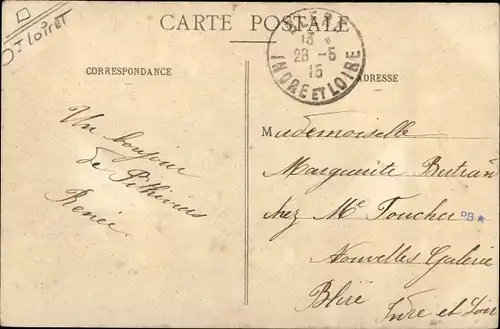 Dt Loiret
CARTE POSTALE
BLÉRÉ
13 *
28 -5
15
INDRE ET LOIRE
CORRESPONDANCE
ADRESSE
Un bonjour
de Pithiviers
Renée
Mademoiselle
Marguerite Bertran
chez Me Toucher
DB
Nouvelles Galerie
Bléré
Indre et Loir